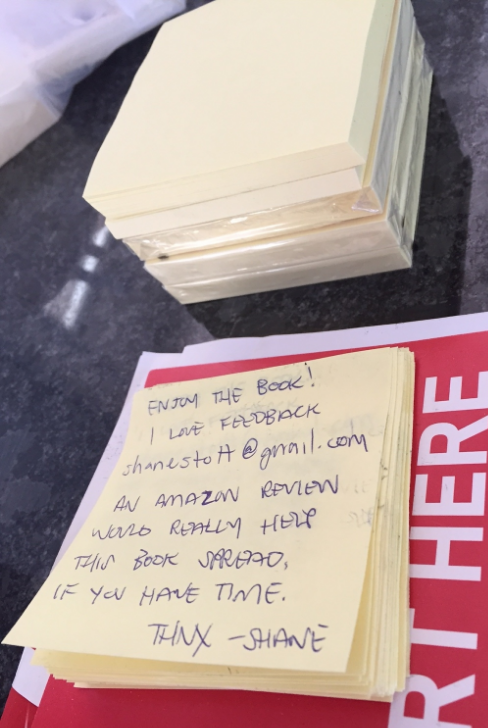 ENJOY THE BOOK!
I LOVE FEEDBACK
shanestott@gmail.com
AN AMAZON REVIEW
WOULD REALLY HELP
THIS BOOK SPREAD,
IF YOU HAVE TIME.
THNX -SHANE
RT HERE